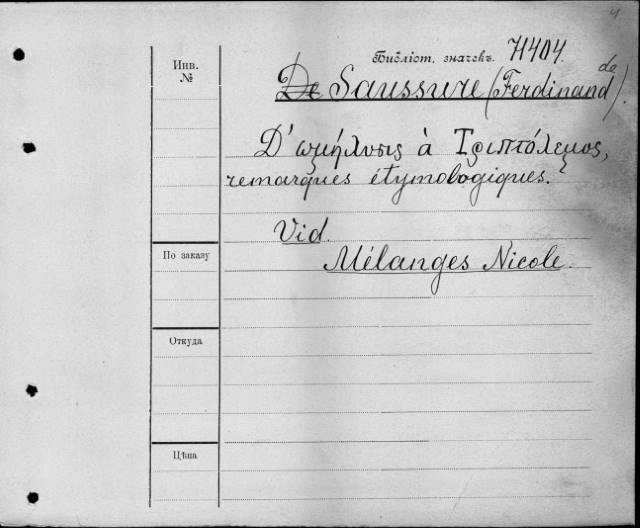 Библіот. значекъ.
Инв.
№
De Saussure (Ferdinand de).
D'ωμήλυσις à Τριπτόλεμος,
remarques étymologiques.
Vid.
Mélanges Nicole.
По заказу
Откуда
Цѣна